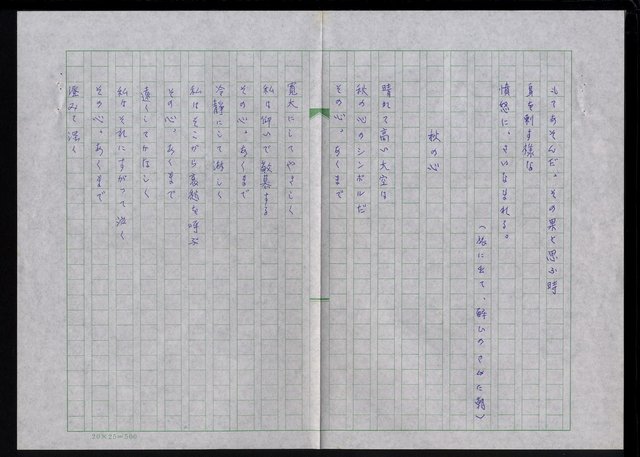 してあそんだ。その果と思ふ時
身を刺す様な
憤怒に、さいなまれる。
(旅に出て、酔ひのさめた朝)
秋の心
晴れて高い大空は
秋の心のシンボルだ
その心。あくまで
寛大にしてやさしく
私は仰いで敬慕する
その心。あくまで
冷静にして淋しく
私はそこから哀愁を呼ぶ
その心。あくまで
遠くしてかなしく
私はそれにすがつて泣く
その心。あくまで
澄みて深く
20×25=500